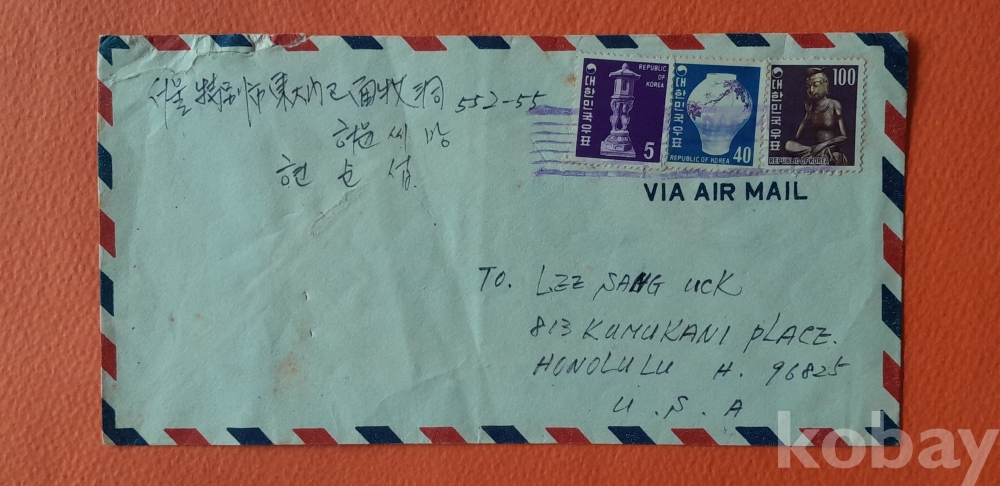 서울特別市 東大门區 面牧洞 552-55
許 씨 방
현
REPUBLIC OF KOREA
대한민국우표
5
대한민국우표
40
REPUBLIC OF KOREA
100
대한민국우표
REPUBLIC OF KOREA
VIA AIR MAIL
TO. LEE SANG UCK
813 KUMUKANI PLACE.
HONOLULU H. 96825
U.S.A
kobay